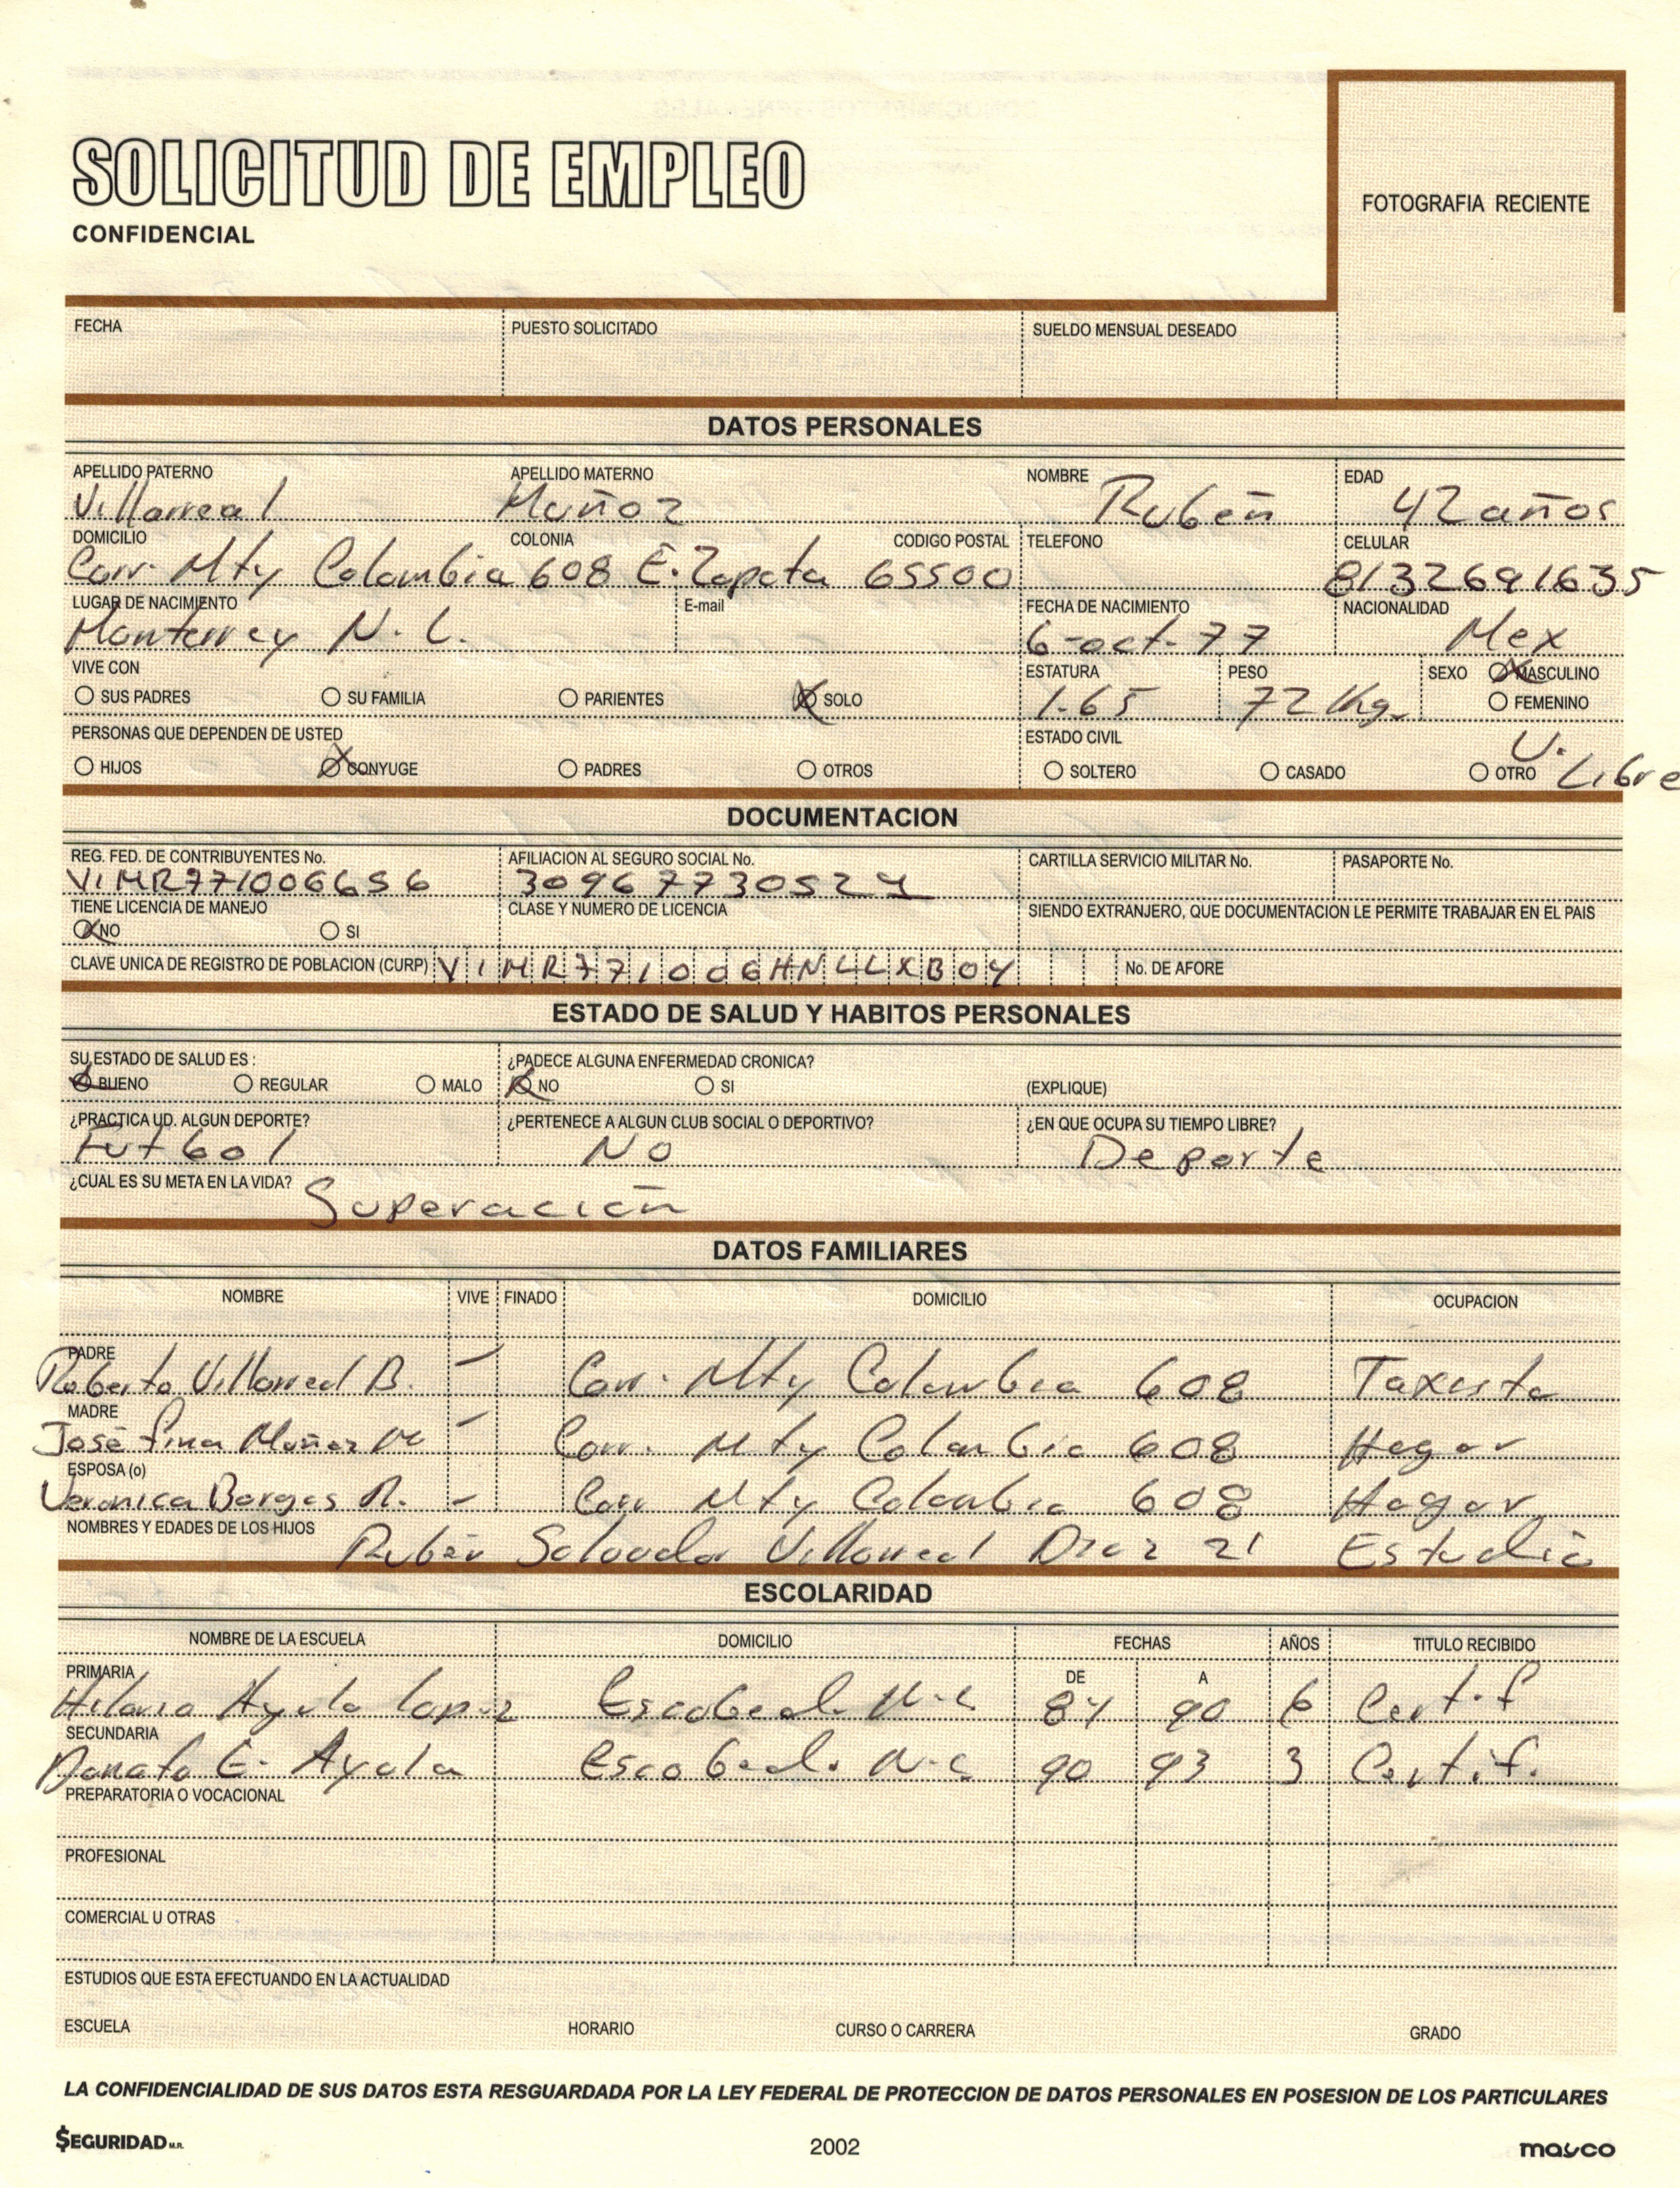 SOLICITUD DE EMPLEO
CONFIDENCIAL
FOTOGRAFIA RECIENTE
FECHA PUESTO SOLICITADO SUELDO MENSUAL DESEADO
DATOS PERSONALES
APELLIDO PATERNO APELLIDO MATERNO NOMBRE EDAD
Villarreal Muñoz Rubén 42 años
DOMICILIO COLONIA CODIGO POSTAL TELEFONO CELULAR
Carr. Mty Colombia 608 E. Zapata 65500 8132691635
LUGAR DE NACIMIENTO E-mail FECHA DE NACIMIENTO NACIONALIDAD
Monterrey N.L. 6-oct-77 Mex
VIVE CON ESTATURA PESO SEXO MASCULINO
SUS PADRES SU FAMILIA PARIENTES SOLO 1.65 72 Kg. FEMENINO
PERSONAS QUE DEPENDEN DE USTED ESTADO CIVIL U.
HIJOS CONYUGE PADRES OTROS SOLTERO CASADO OTRO Libre
DOCUMENTACION
REG. FED. DE CONTRIBUYENTES No. AFILIACION AL SEGURO SOCIAL No. CARTILLA SERVICIO MILITAR No. PASAPORTE No.
VIMR7710066S6 30967730524
TIENE LICENCIA DE MANEJO CLASE Y NUMERO DE LICENCIA SIENDO EXTRANJERO, QUE DOCUMENTACION LE PERMITE TRABAJAR EN EL PAIS
NO SI
CLAVE UNICA DE REGISTRO DE POBLACION (CURP) VIMR771006HNLLXB04 No. DE AFORE
ESTADO DE SALUD Y HABITOS PERSONALES
SU ESTADO DE SALUD ES : ¿PADECE ALGUNA ENFERMEDAD CRONICA?
BUENO REGULAR MALO NO SI (EXPLIQUE)
¿PRACTICA UD. ALGUN DEPORTE? ¿PERTENECE A ALGUN CLUB SOCIAL O DEPORTIVO? ¿EN QUE OCUPA SU TIEMPO LIBRE?
Futbol NO Deporte
¿CUAL ES SU META EN LA VIDA? Superación
DATOS FAMILIARES
NOMBRE VIVE FINADO DOMICILIO OCUPACION
PADRE
Roberto Villarreal B. Carr. Mty Colombia 608 Taxista
MADRE
José fina Muñoz M Carr. Mty Colombia 608 Hogar
ESPOSA (o)
Veronica Borges R. Carr Mty Colombia 608 Hogar
NOMBRES Y EDADES DE LOS HIJOS
Rubén Salvador Villarreal Diaz 21 Estudia
ESCOLARIDAD
NOMBRE DE LA ESCUELA DOMICILIO FECHAS AÑOS TITULO RECIBIDO
PRIMARIA DE A
Hilario Ayala Lopez Escobed. N.L 84 90 6 Certif
SECUNDARIA
Donato E. Ayala Escobed. N.L 90 93 3 Certif.
PREPARATORIA O VOCACIONAL
PROFESIONAL
COMERCIAL U OTRAS
ESTUDIOS QUE ESTA EFECTUANDO EN LA ACTUALIDAD
ESCUELA HORARIO CURSO O CARRERA GRADO
LA CONFIDENCIALIDAD DE SUS DATOS ESTA RESGUARDADA POR LA LEY FEDERAL DE PROTECCION DE DATOS PERSONALES EN POSESION DE LOS PARTICULARES
$EGURIDAD M.R. 2002 mayco